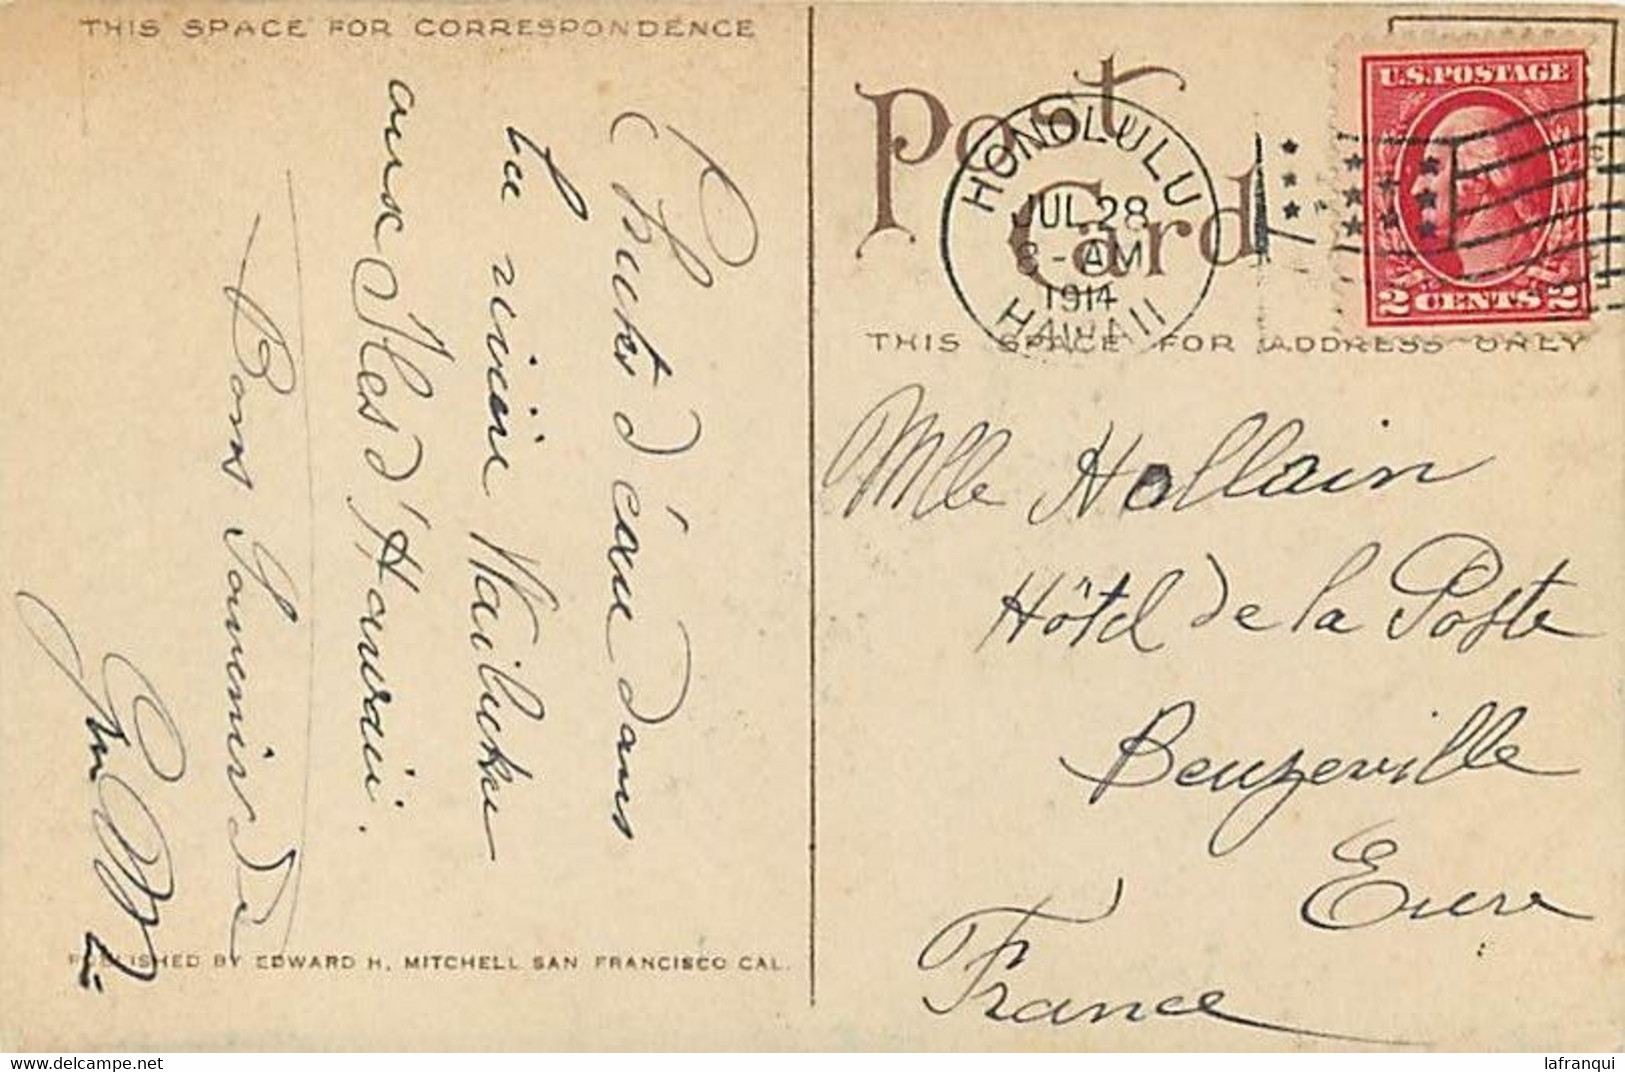 THIS SPACE FOR CORRESPONDENCE
Chutes d'eau dans
la rivière Wailuku
aux Iles d'Hawaii.
Bons Souvenirs de
PUBLISHED BY EDWARD H. MITCHELL SAN FRANCISCO CAL.
Post
Card
HONOLULU
JUL 28
8-AM
1914
HAWAII
U.S. POSTAGE
2 CENTS 2
THIS SPACE FOR ADDRESS ONLY
Mlle Hallain
Hôtel de la Poste
Beuzeville
Eure
France
lafranqui